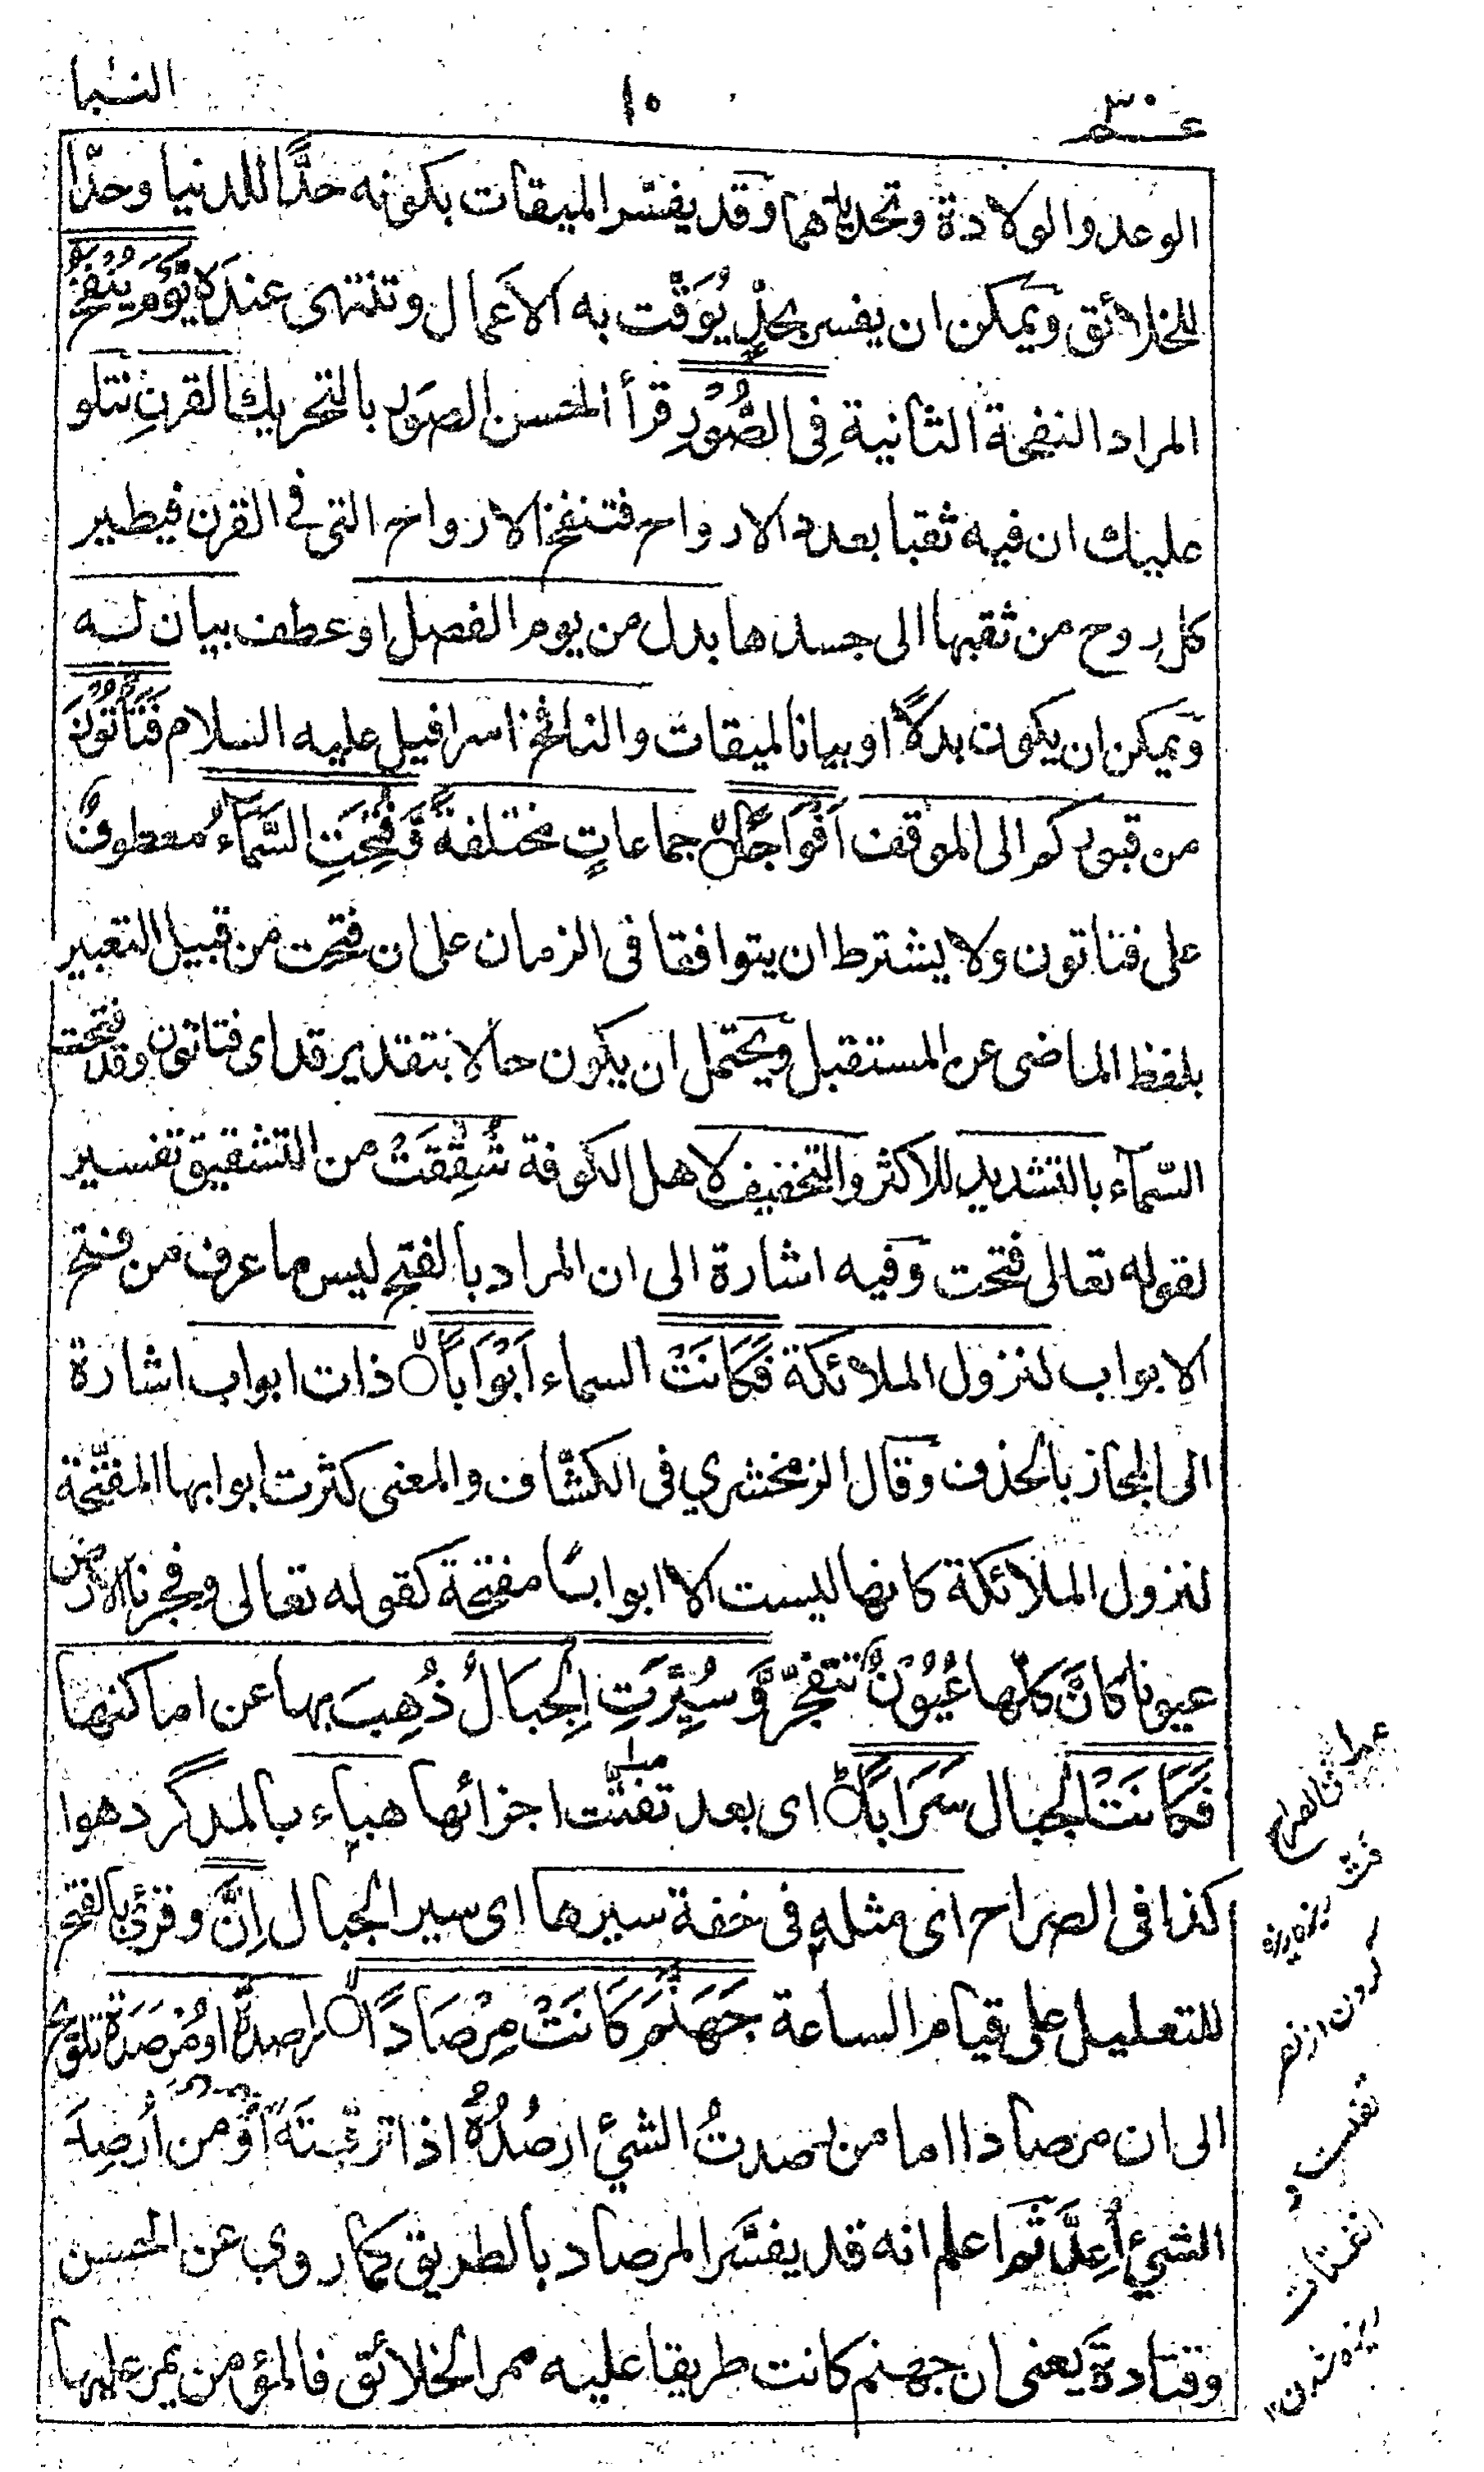 عم ٣٠
١٠
النبا
الوعد والولادة وتحديدهما وقد يفسّر الميقات بكونه حدًّا للدنيا وحدّا
للخلائق ويمكن ان يفسر بحدٍّ يُوَقَّت به الاعمال وتنتهى عنده يَّوْمَ يُنْفَخُ
المراد النفخة الثانية فِى الصُّوْرِ قرأ الحسن الصوَر بالتحريك القرنِ نتلو
عليك ان فيه ثقبا بعدد الارواح فتنفخ الارواح التى فى القرن فيطير
كل روح من ثقبها الى جسدها بدل من يوم الفصل او عطف بيان له
ويمكن ان يكون بدلًا او بيانا لميقات والنافخ اسرافيل عليه السلام فَتَأْتُوْنَ
من قبوركم الى الموقف اَفْوَاجًا جماعاتٍ مختلفةً وَّفُتِحَتِ السَّمَآءُ معطوفٌ
على فتاتون ولا يشترط ان يتوافقا فى الزمان على ان فتحت من قبيل التعبير
بلفظ الماضى عن المستقبل ويحتمل ان يكون حالا بتقدير قد اى فتاتون وقد فتحت
السّمآء بالتشديد للاكثر والتخفيف لاهل الكوفة شُقِّقَتْ من التشقيق تفسير
لقوله تعالى فتحت وفيه اشارة الى ان المراد بالفتح ليس ما عرف من فتح
الابواب لنزول الملائكة فَكَانَتْ السماء اَبْوَابًا ذات ابواب اشارة
الى المجاز بالحذف وقال الزمخشري فى الكشّاف والمعنى كثرت ابوابها المفتّحة
لنزول الملائكة كانها ليست الا ابوابًا مفتحة كقوله تعالى وفجرنا الارض
عيونا كانَّ كلّها عُيُوْنٌ تتفجّر وَّسُيِّرَتِ الْجِبَالُ ذُهِبَ بها عن اماكنها
فَكَانَتْ الجبال سَرَابًا اى بعد تفتّت اجزائها هباء بالمد گرد هوا
كذا فى الصراح اى مثله فى خفة سيرها اى سير الجبال اِنَّ وقرئ بالفتح
للتعليل على قيام الساعة جَهَنَّمَ كَانَتْ مِرْصَادًا راصدةً او مُرْصَدَةً تلويح
الى ان مرصادا اما من رصدتُ الشئ ارصُدُهٗ اذا ترقّبتَه اَوْ من اُرصِدَ
الشئ اُعِدَّ ثم اعلم انه قد يفسَّر المرصاد بالطريق كما روي عن الحسن
وقتادة يعنى ان جهنم كانت طريقا عليه ممر الخلائق فالمؤمن يمر عليها